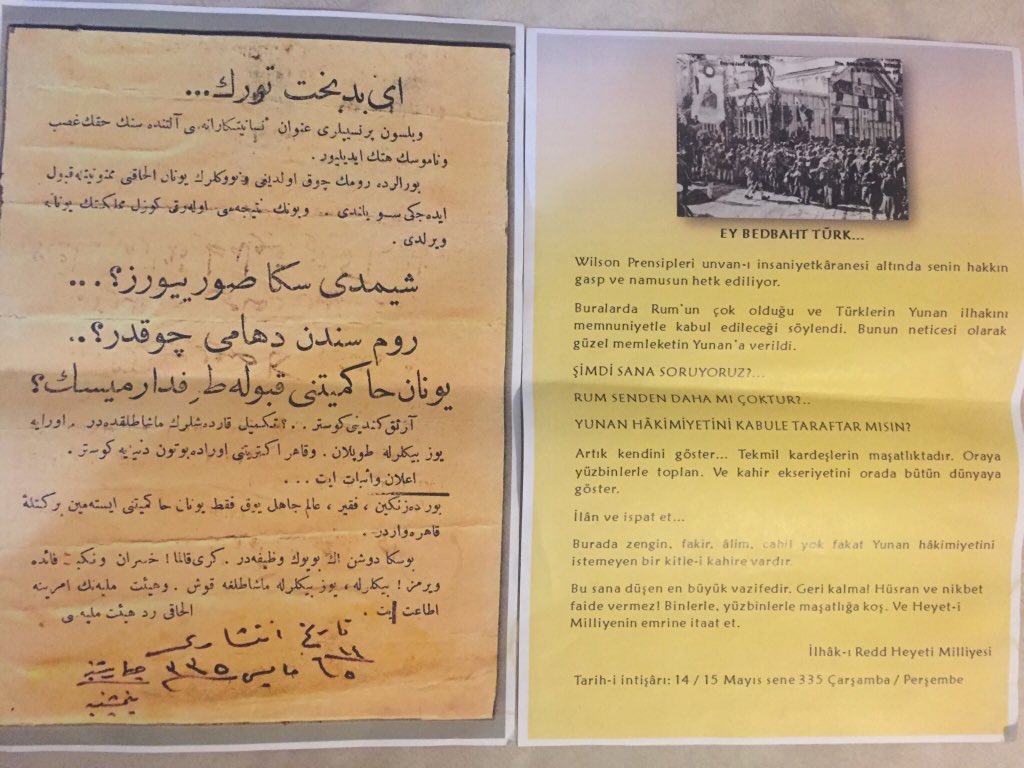 ای بدبخت تورك...
ويلسون پرنسيپلری عنوان انسانيتكارانه‌سی آلتنده سنك حقك غصب
وناموسك هتك ايديليور.
بورالرده رومك چوق اولديغی وتوركلرك يونان الحاقی ممنونيتله قبول
ايده‌جكی سويلندی. وبونك نتيجه‌سی اوله‌رق كوزل مملكتك يونانه
ويرلدی.
شيمدی سكا صورييورز؟...
روم سندن دهامی چوقدر؟..
يونان حاكميتنی قبوله طرفدارميسك؟
آرتق كندينی كوستر...؟ تكميل قارده‌شلرك ماشاطلقده‌در. اورايه
يوز بيكلرله طوپلان. وقاهر اكثريتنی اوراده بوتون دنيايه كوستر.
اعلان واثبات ايت...
بورده زنكين، فقير، عالم جاهل يوق فقط يونان حاكميتنی ايسته‌مين بر كتلهٔ
قاهره واردر.
بو سكا دوشن اك بويوك وظيفه‌در. كری قالما! خسران ونكبت فائده
ويرمز! بيكلرله، يوز بيكلرله ماشاطلغه قوش. وهيئت مليه‌نك امرينه
اطاعت ايت. الحاقی رد هيئت مليه‌سی
تاريخ انتشاری
١٤/١٥ مايس ٣٣٥ چهارشنبه
پنجشنبه
EY BEDBAHT TÜRK...
Wilson Prensipleri unvan-ı insaniyetkâranesi altında senin hakkın
gasp ve namusun hetk ediliyor.
Buralarda Rum'un çok olduğu ve Türklerin Yunan ilhakını
memnuniyetle kabul edileceği söylendi. Bunun neticesi olarak
güzel memleketin Yunan'a verildi.
ŞİMDİ SANA SORUYORUZ?...
RUM SENDEN DAHA MI ÇOKTUR?..
YUNAN HÂKİMİYETİNİ KABULE TARAFTAR MISIN?
Artık kendini göster... Tekmil kardeşlerin maşatlıktadır. Oraya
yüzbinlerle toplan. Ve kahir ekseriyetini orada bütün dünyaya
göster.
İlân ve ispat et...
Burada zengin, fakir, âlim, cahil yok fakat Yunan hâkimiyetini
istemeyen bir kitle-i kahire vardır.
Bu sana düşen en büyük vazifedir. Geri kalma! Hüsran ve nikbet
faide vermez! Binlerle, yüzbinlerle maşatlığa koş. Ve Heyet-i
Milliyenin emrine itaat et.
İlhâk-ı Redd Heyeti Milliyesi
Tarih-i intişârı: 14 / 15 Mayıs sene 335 Çarşamba / Perşembe